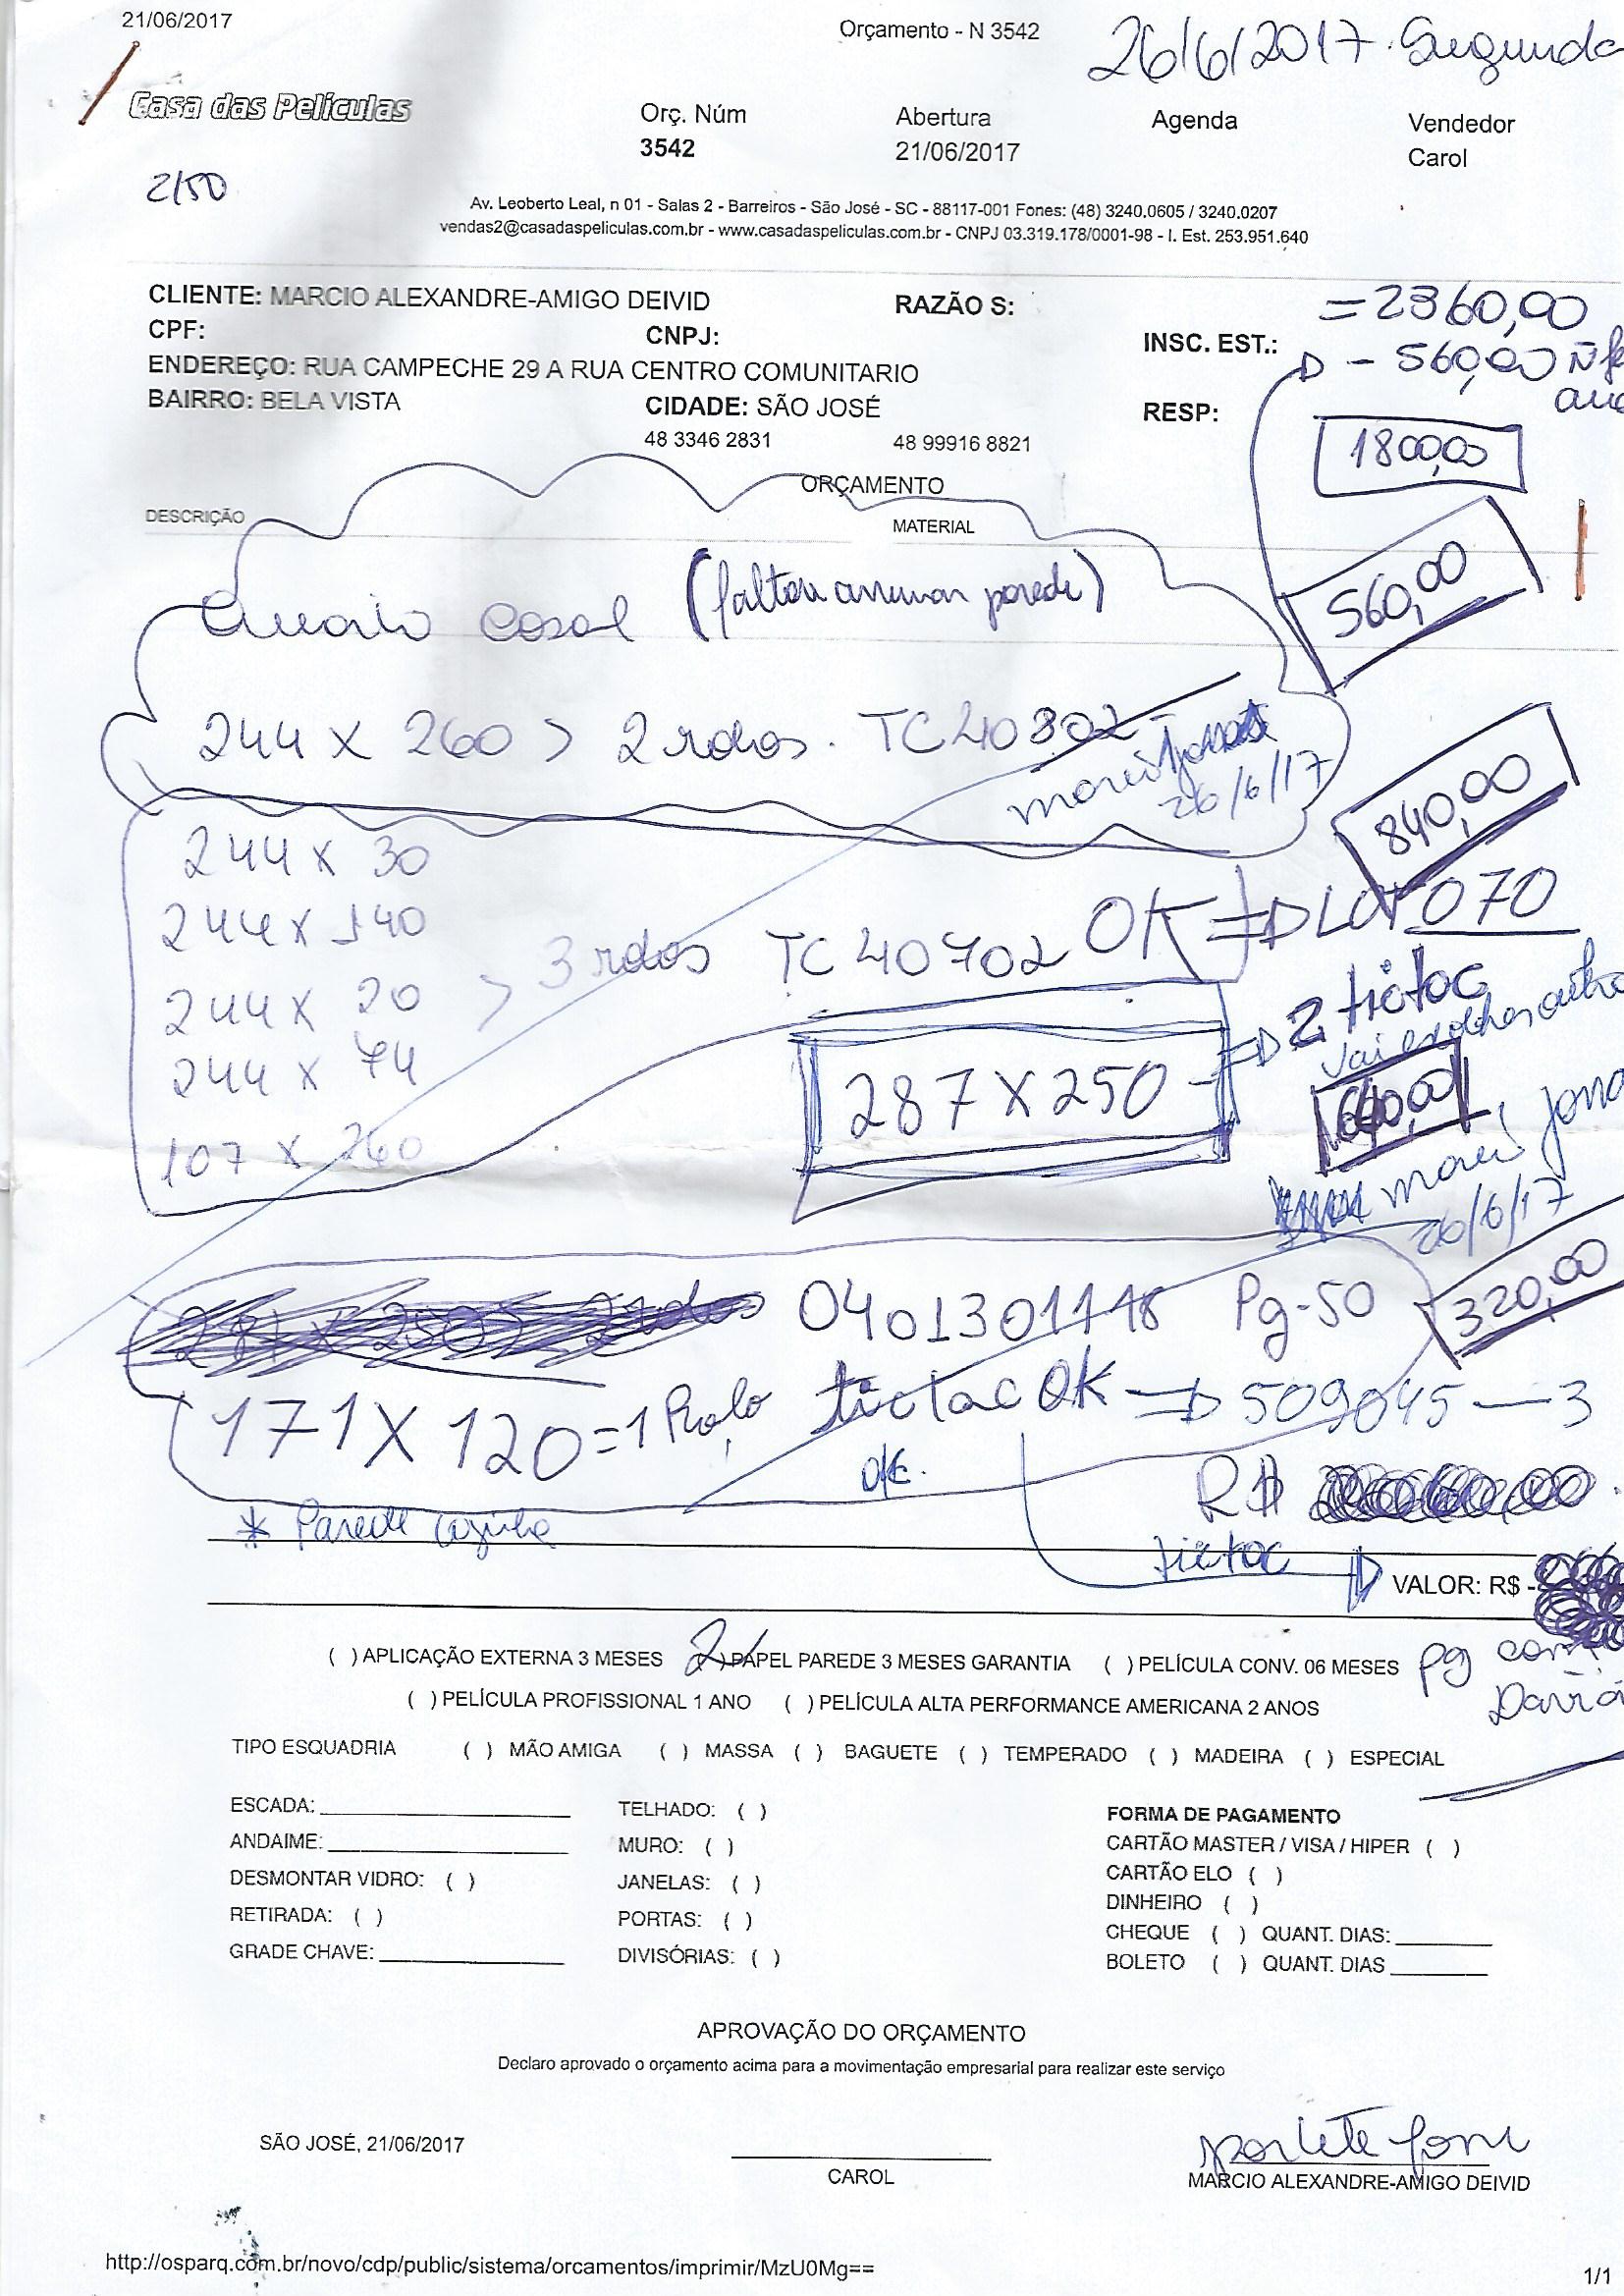 21/06/2017
Orçamento - N 3542
26/6/2017. Segunda
Casa das Películas
Orç. Núm
3542
Abertura
21/06/2017
Agenda
Vendedor
Carol
2150
Av. Leoberto Leal, n 01 - Salas 2 - Barreiros - São José - SC - 88117-001 Fones: (48) 3240.0605 / 3240.0207
vendas2@casadaspeliculas.com.br - www.casadaspeliculas.com.br - CNPJ 03.319.178/0001-98 - I. Est. 253.951.640
CLIENTE: MARCIO ALEXANDRE-AMIGO DEIVID
RAZÃO S:
CPF:
CNPJ:
INSC. EST.:
ENDEREÇO: RUA CAMPECHE 29 A RUA CENTRO COMUNITARIO
BAIRRO: BELA VISTA
CIDADE: SÃO JOSÉ
RESP:
48 3346 2831
48 99916 8821
= 2360,00
- 560,00
1800,00
ORÇAMENTO
DESCRIÇÃO
MATERIAL
560,00
Quarto casal (faltou arrumar parede)
244 X 260 > 2 rolos. TC40802
26/6/17
840,00
244 X 30
244 X 140
244 X 20 > 3 rolos TC 40702 OK
070
244 X 74
107 X 260
2 tictac
vai escolher outro
287 X 250
640,00
26/6/17
0401301118 Pg-50
320,00
171 X 120 = 1 Rolo tictac OK 509045 — 3
ok.
R$
* Parede cozinha
tictac
VALOR: R$ -
( ) APLICAÇÃO EXTERNA 3 MESES ( ) PAPEL PAREDE 3 MESES GARANTIA ( ) PELÍCULA CONV. 06 MESES
pg com
( ) PELÍCULA PROFISSIONAL 1 ANO ( ) PELÍCULA ALTA PERFORMANCE AMERICANA 2 ANOS
TIPO ESQUADRIA ( ) MÃO AMIGA ( ) MASSA ( ) BAGUETE ( ) TEMPERADO ( ) MADEIRA ( ) ESPECIAL
ESCADA:
ANDAIME:
DESMONTAR VIDRO: ( )
RETIRADA: ( )
GRADE CHAVE:
TELHADO: ( )
MURO: ( )
JANELAS: ( )
PORTAS: ( )
DIVISÓRIAS: ( )
FORMA DE PAGAMENTO
CARTÃO MASTER / VISA / HIPER ( )
CARTÃO ELO ( )
DINHEIRO ( )
CHEQUE ( ) QUANT. DIAS:
BOLETO ( ) QUANT. DIAS
APROVAÇÃO DO ORÇAMENTO
Declaro aprovado o orçamento acima para a movimentação empresarial para realizar este serviço
SÃO JOSÉ, 21/06/2017
CAROL
MARCIO ALEXANDRE-AMIGO DEIVID
http://osparq.com.br/novo/cdp/public/sistema/orcamentos/imprimir/MzU0Mg==
1/1